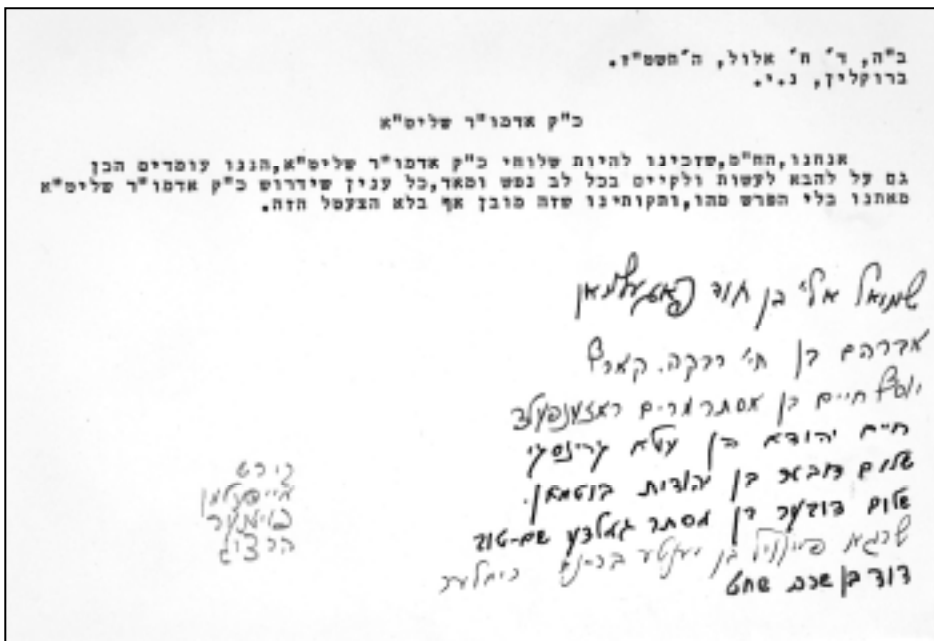 ב"ה, ד' ח' אלול, ה'תשט"ז.
ברוקלין, נ.י.
כ"ק אדמו"ר שליט"א
אנחנו,הח"מ,שזכינו להיות שלוחי כ"ק אדמו"ר שליט"א,הננו עומדים הכן
גם על להבא לעשות ולקיים בכל לב נפש ומאד,כל ענין שידרוש כ"ק אדמו"ר שליט"א
מאתנו בלי הפרש מהו,ותקותינו שזה מובן אף בלא הצעטל הזה.
שמואל אלי' בן
אברהם בן חי' רבקה. קארף
יוסף חיים בן אסתר מרים ראזענפעלד
חיים יהודא בן עטא קרינסקי
שלום דובער בן יהודית בוטמאן.
שלום דובער בן אסתר גאלדע שם-טוב
שרגא פייוויל בן יענטע
דוד בן שחט
הרצוג